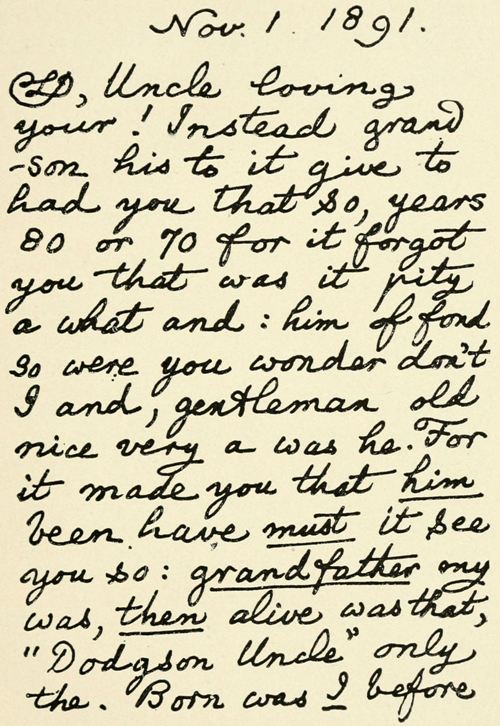 Nov. 1. 1891.
CD, Uncle loving
your! Instead grand
-son his to it give to
had you that so, years
80 or 70 for it forgot
you that was it pity
a what and: him of fond
so were you wonder don't
I and, gentleman old
nice very a was he. For
it made you that him
been have must it see
you so: grandfather my
was, then alive was that,
"Dodgson Uncle" only
the. Born was I before